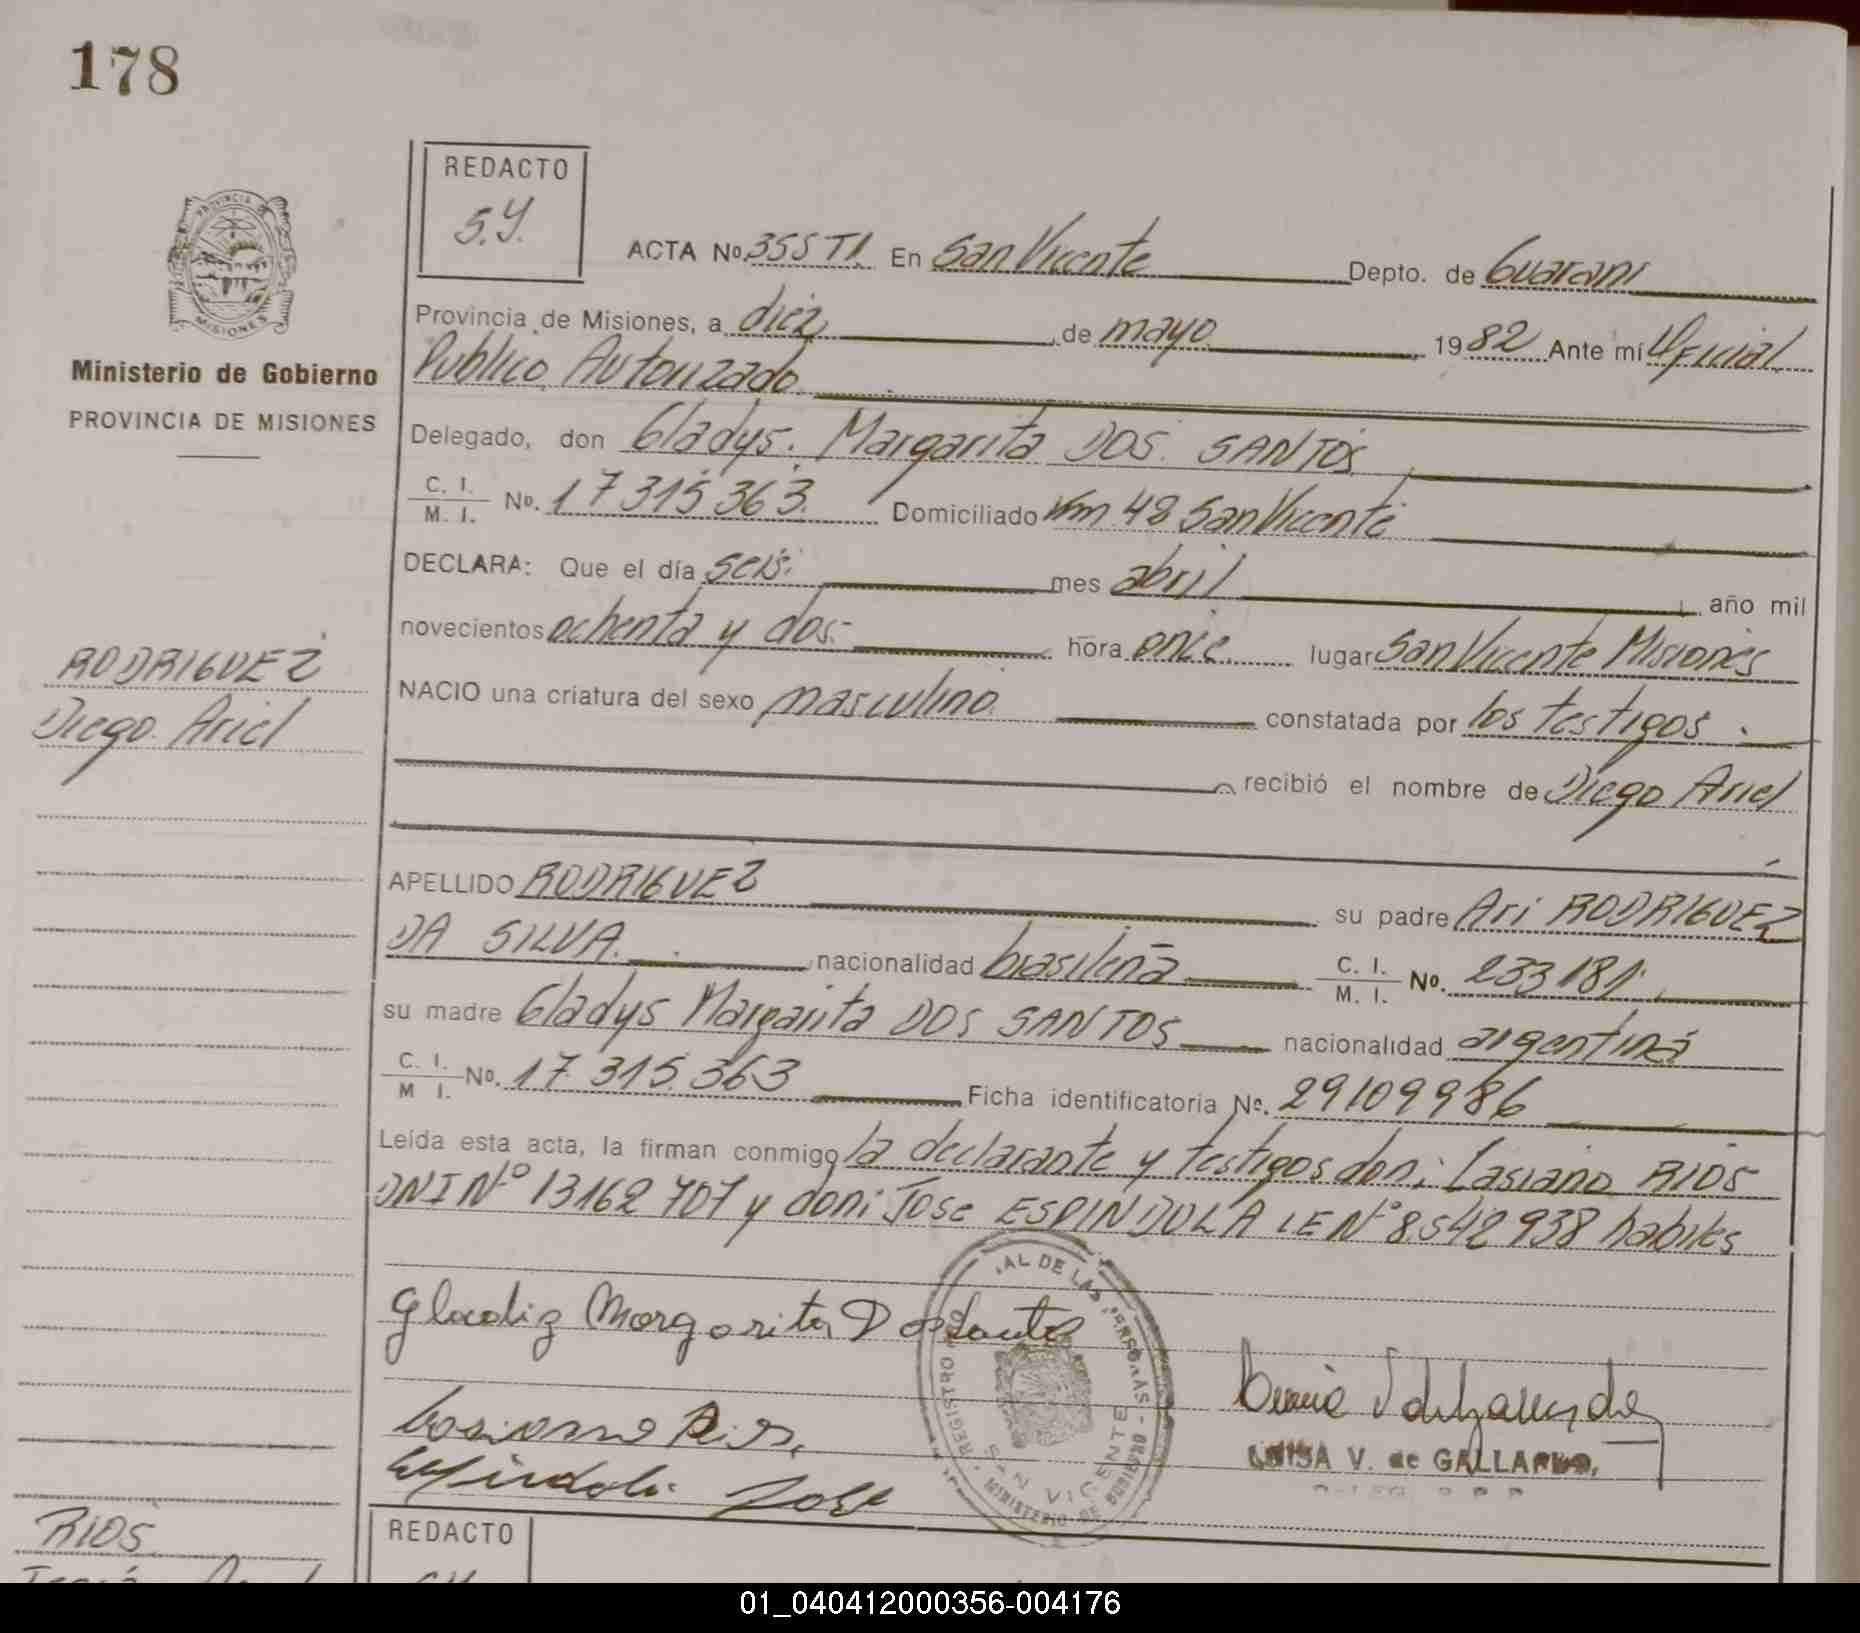 178
REDACTO
S.Y.
PROVINCIA DE
MISIONES
Ministerio de Gobierno
PROVINCIA DE MISIONES
ACTA No. 355 TI. En San Vicente Depto. de Guarani
Provincia de Misiones, a diez de mayo 1982 Ante mí Oficial
Publico Autorizado.
Delegado, don Gladys. Margarita DOS. SANTOS
C. I.
M. I. No. 17315363. Domiciliado Km 48 San Vicente
DECLARA: Que el día seis. mes abril año mil
novecientos ochenta y dos.- hora once. lugar San Vicente Misiones
RODRIGUEZ
Diego Ariel
NACIO una criatura del sexo masculino. constatada por los testigos.
recibió el nombre de Diego Ariel
APELLIDO RODRIGUEZ su padre Ari RODRIGUEZ
DA SILVA. nacionalidad brasileña C. I.
M. I. No. 233181.
su madre Gladys Margarita DOS SANTOS nacionalidad argentina
C. I.
M I. No. 17.315.363 Ficha identificatoria No. 29109986
Leída esta acta, la firman conmigo la declarante y testigos don: Casiano RIOS
DNI Nº 13162707 y don: Jose ESPINDOLA LE Nº 8542938 habiles
Gladiz Margarita Dos Santos
Casiano Rios
Espindola Jose
REGISTRO DE LAS PERSONAS - MINISTERIO DE GOBIERNO
SAN VICENTE
LUISA V. de GALLARDO
RIOS
REDACTO
01_040412000356-004176